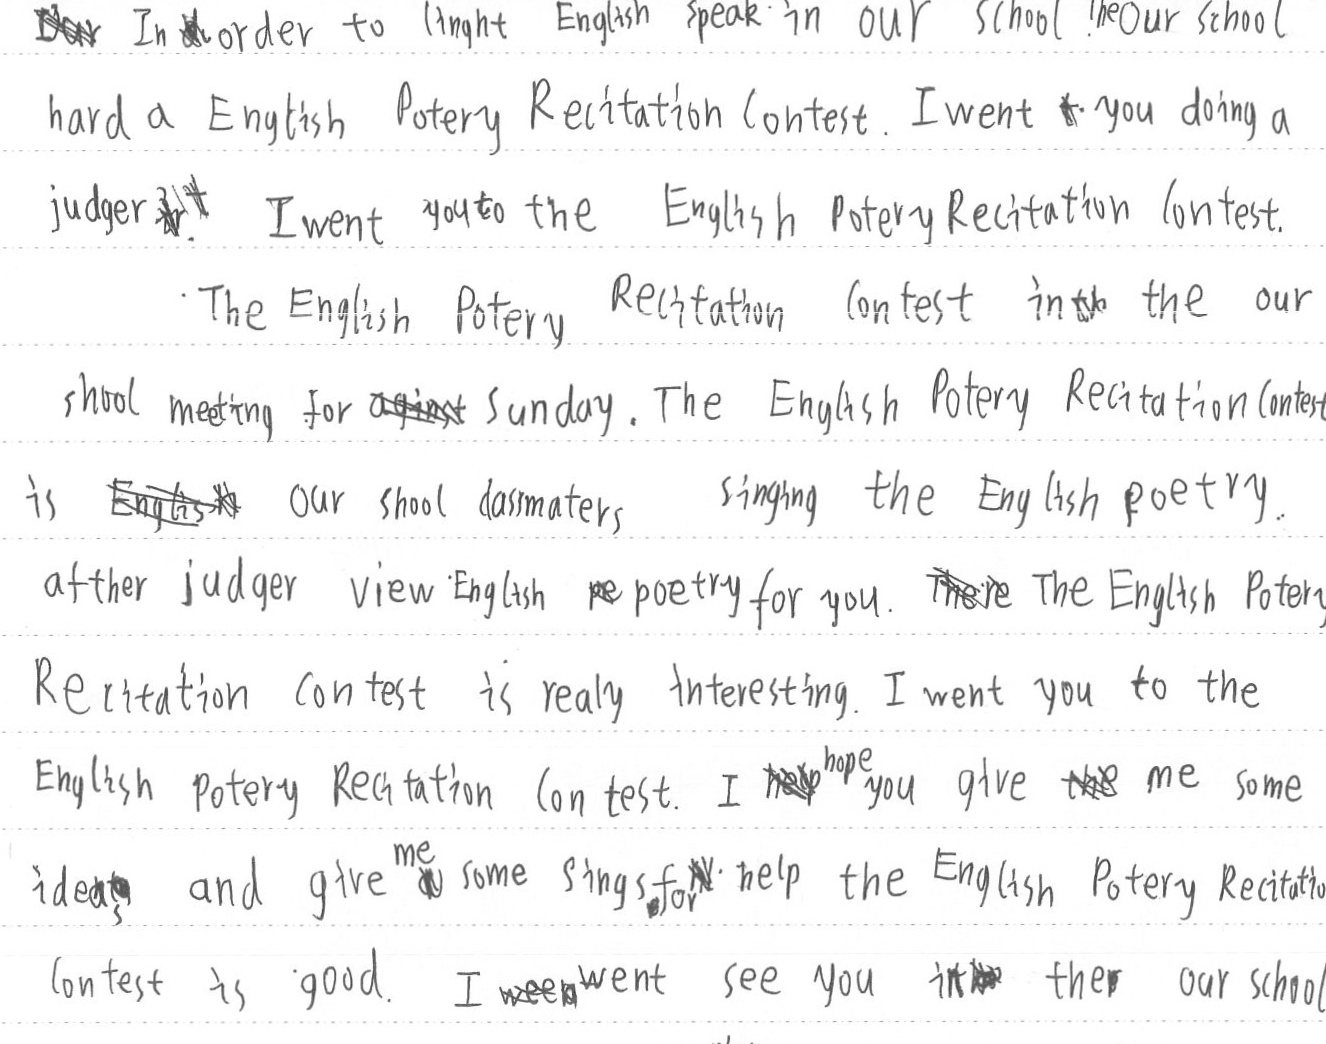 In order to linght English speak in our school the Our school
hard a English Potery Recitation Contest. I went you doing a
judger I went you to the English Potery Recitation Contest.
The English Potery Recitation Contest in the our
shool meeting for Sunday. The English Potery Recitation Contest
is our shool dassmaters singing the English poetry.
afther judger view English poetry for you. The English Potery
Recitation Contest is realy interesting. I went you to the
English Potery Recitation Contest. I hope you give me some
ideas and give me some sings for help the English Potery Recitatio
Contest is good. I went see you ther our school